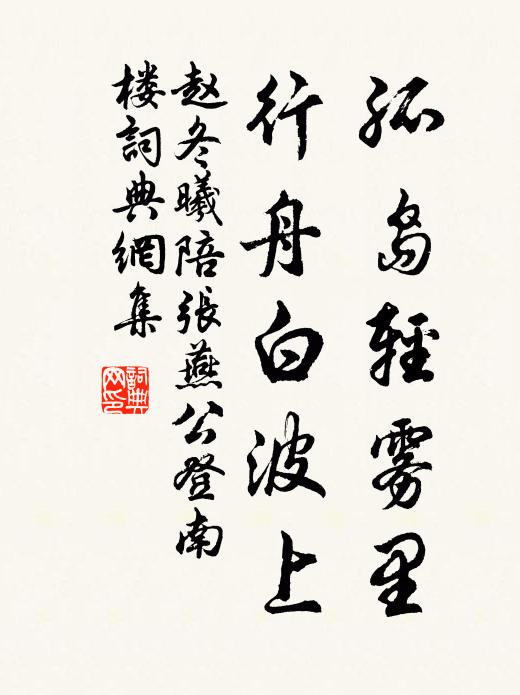 孤岛轻雾里
行舟白波上
赵冬曦陪張燕公登南
楼詞典網集
詞典
网印